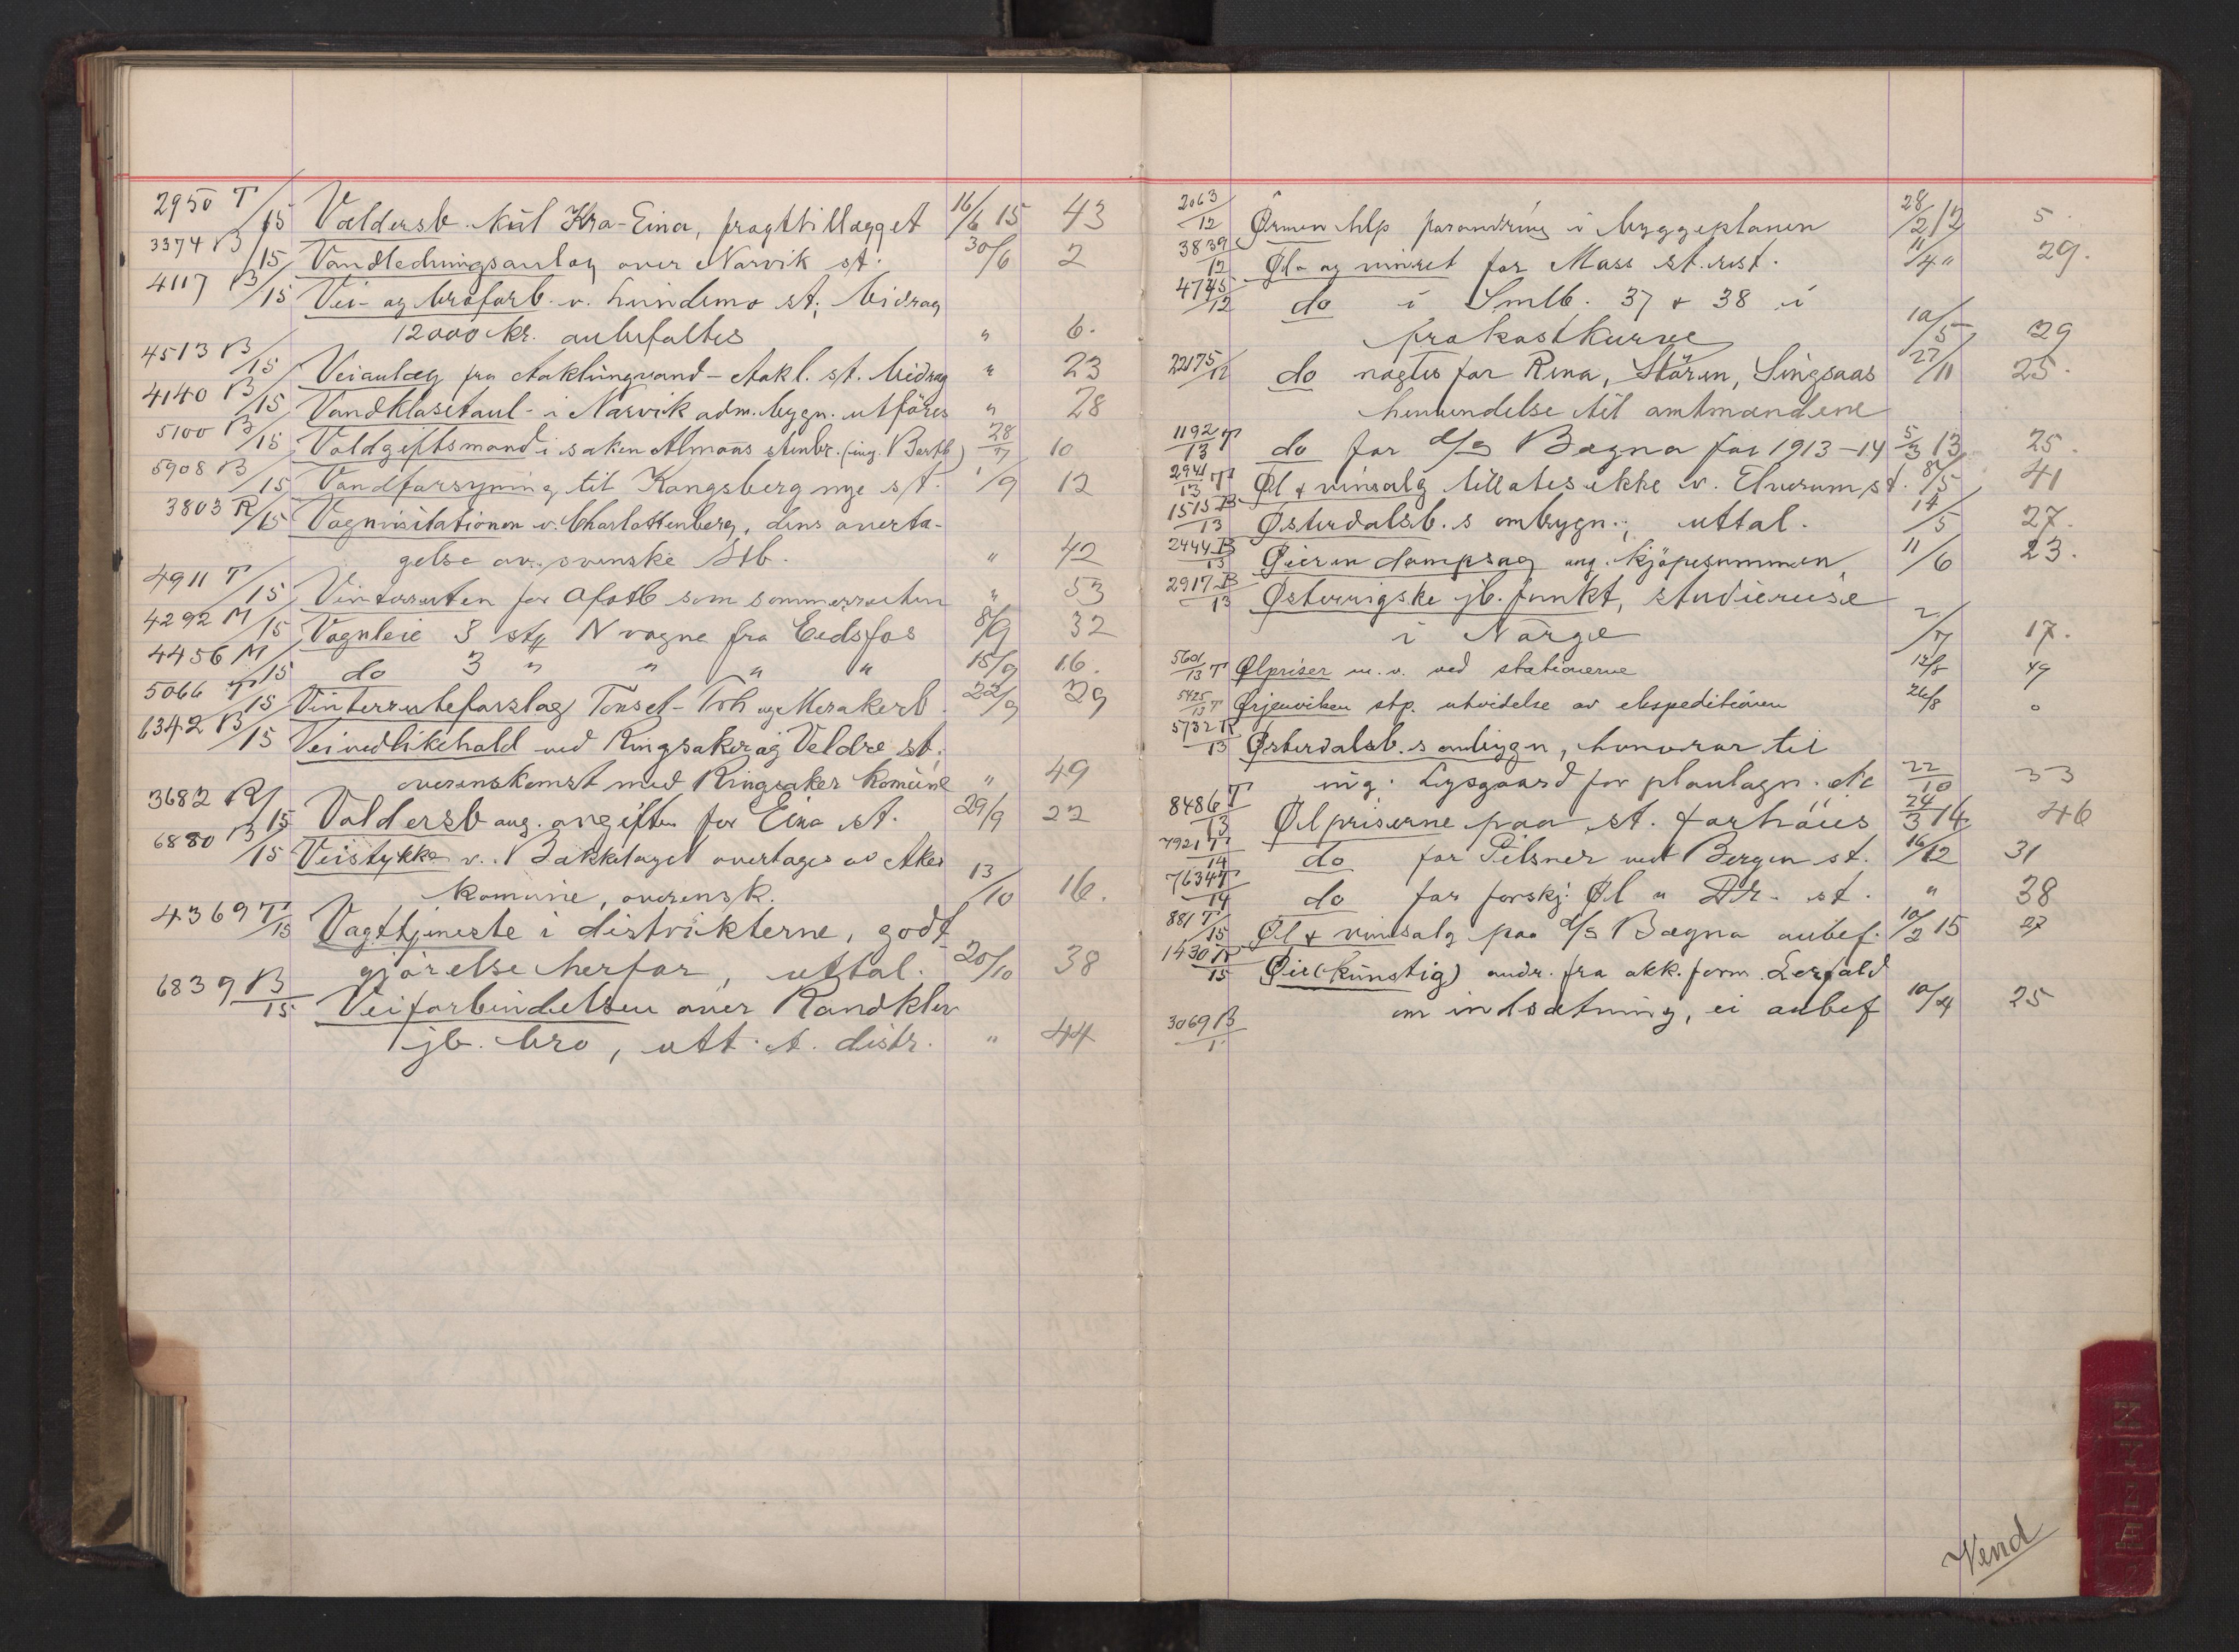 2950 T/15 Valdersb. kul Kra-Eina, fragttillægget 16/6 15 43
3374 B/15 Vandledningsanlæg over Narvik st. 30/6 2
4117 B/15 Vei- og broforb. v. Lundemo st; bidrag
12000 kr. anbefaltes " 6.
4513 B/15 Veianlæg fra Aaklungvand - Aakl. st. bidrag " 23
4140 B/15 Vandklosetanl. i Narvik adm. bygn. utföres " 28
5100 B/15 Voldgiftsmand i saken Almaas stenbr. (ing. ) 28/7 10
5908 B/15 Vandforsyning til Kongsberg nye st. 1/9 12
3803 R/15 Vognvisitationen v. Charlottenberg, dens overta-
gelse av svenske Stb. " 42
4911 T/15 Vinterruten for Ofotb som sommerruten " 53
4292 M/15 Vognleie 3 stk N vogne fra Eidsfos 8/9 32
4456 M/15 do 3 " " " " 15/9 16.
5066 T/15 Vinterruteforslag Tönset - Trh og Merakerb. 22/9 29
6342 B/15 Veivedlikehold ved Ringsaker og Veldre st.
overenskomst med Ringsaker komune " 49
3682 R/15 Valdersb ang. avgiften for Eina st. 29/9 22
6880 B/15 Veistykke v. Bækkelaget overtages av Aker
komune, overensk. 13/10 16.
4369 T/15 Vagttjeneste i distrikterne, godt-
gjörelse herfor, uttal. 20/10 38
6839 B/15 Veiforbindelsen over Randklev
jb. bro, utt. t. distr. " 44
2063/12 Örmen hlp forandring i byggeplanen 28/2 12 5.
3839/12 Øl- og vinret for Moss st. rest. 11/4 " 29.
4745/12 do i Smlb. 37 & 38 i
frokostkurve 10/5 29
22175/12 do nægtes for Rena, Stören, Singsaas 27/11 25.
henvendelse til amtmændene
1192 T/13 do for d/s Bægna for 1913-14 5/3 13 25.
2941 T/13 Øl & vinsalg tillates ikke v. Elverum st. 8/5 41
1515 B/13 Østerdalsb.s ombygn., uttal. 14/5 27.
2444 B/13 Øieren dampsag ang. kjöpesummen, 11/6 23.
2917 B/13 Østerrigske jb. funkt, studiereise
i Norge 2/7 17.
5601/13 T Ølpriser m. v. ved stationerne 12/8 49
5425/13 T Ørjenviken stp. utvidelse av ekspeditionen 26/8 0
5732 R/13 Østerdalsb.s ombygn, honorar til
ing. Lysgaard for planlagn. etc 22/10 33
8486 T/13 Ølpriserne paa st. forhöies 24/3 14 46
7921 T/14 do for Pilsner ved Bergen st. 16/12 31
7634 T/14 do for forskj. Øl " Dr. st. " 38
881 T/15 Øl & vinsalg paa d/s Bægna anbef. 10/2 15 27
1430 R/15 Øie (kunstig) andr. fra akk. form. Lerfald
om indsætning, ei anbef 10/4 25
3069 B
Vend